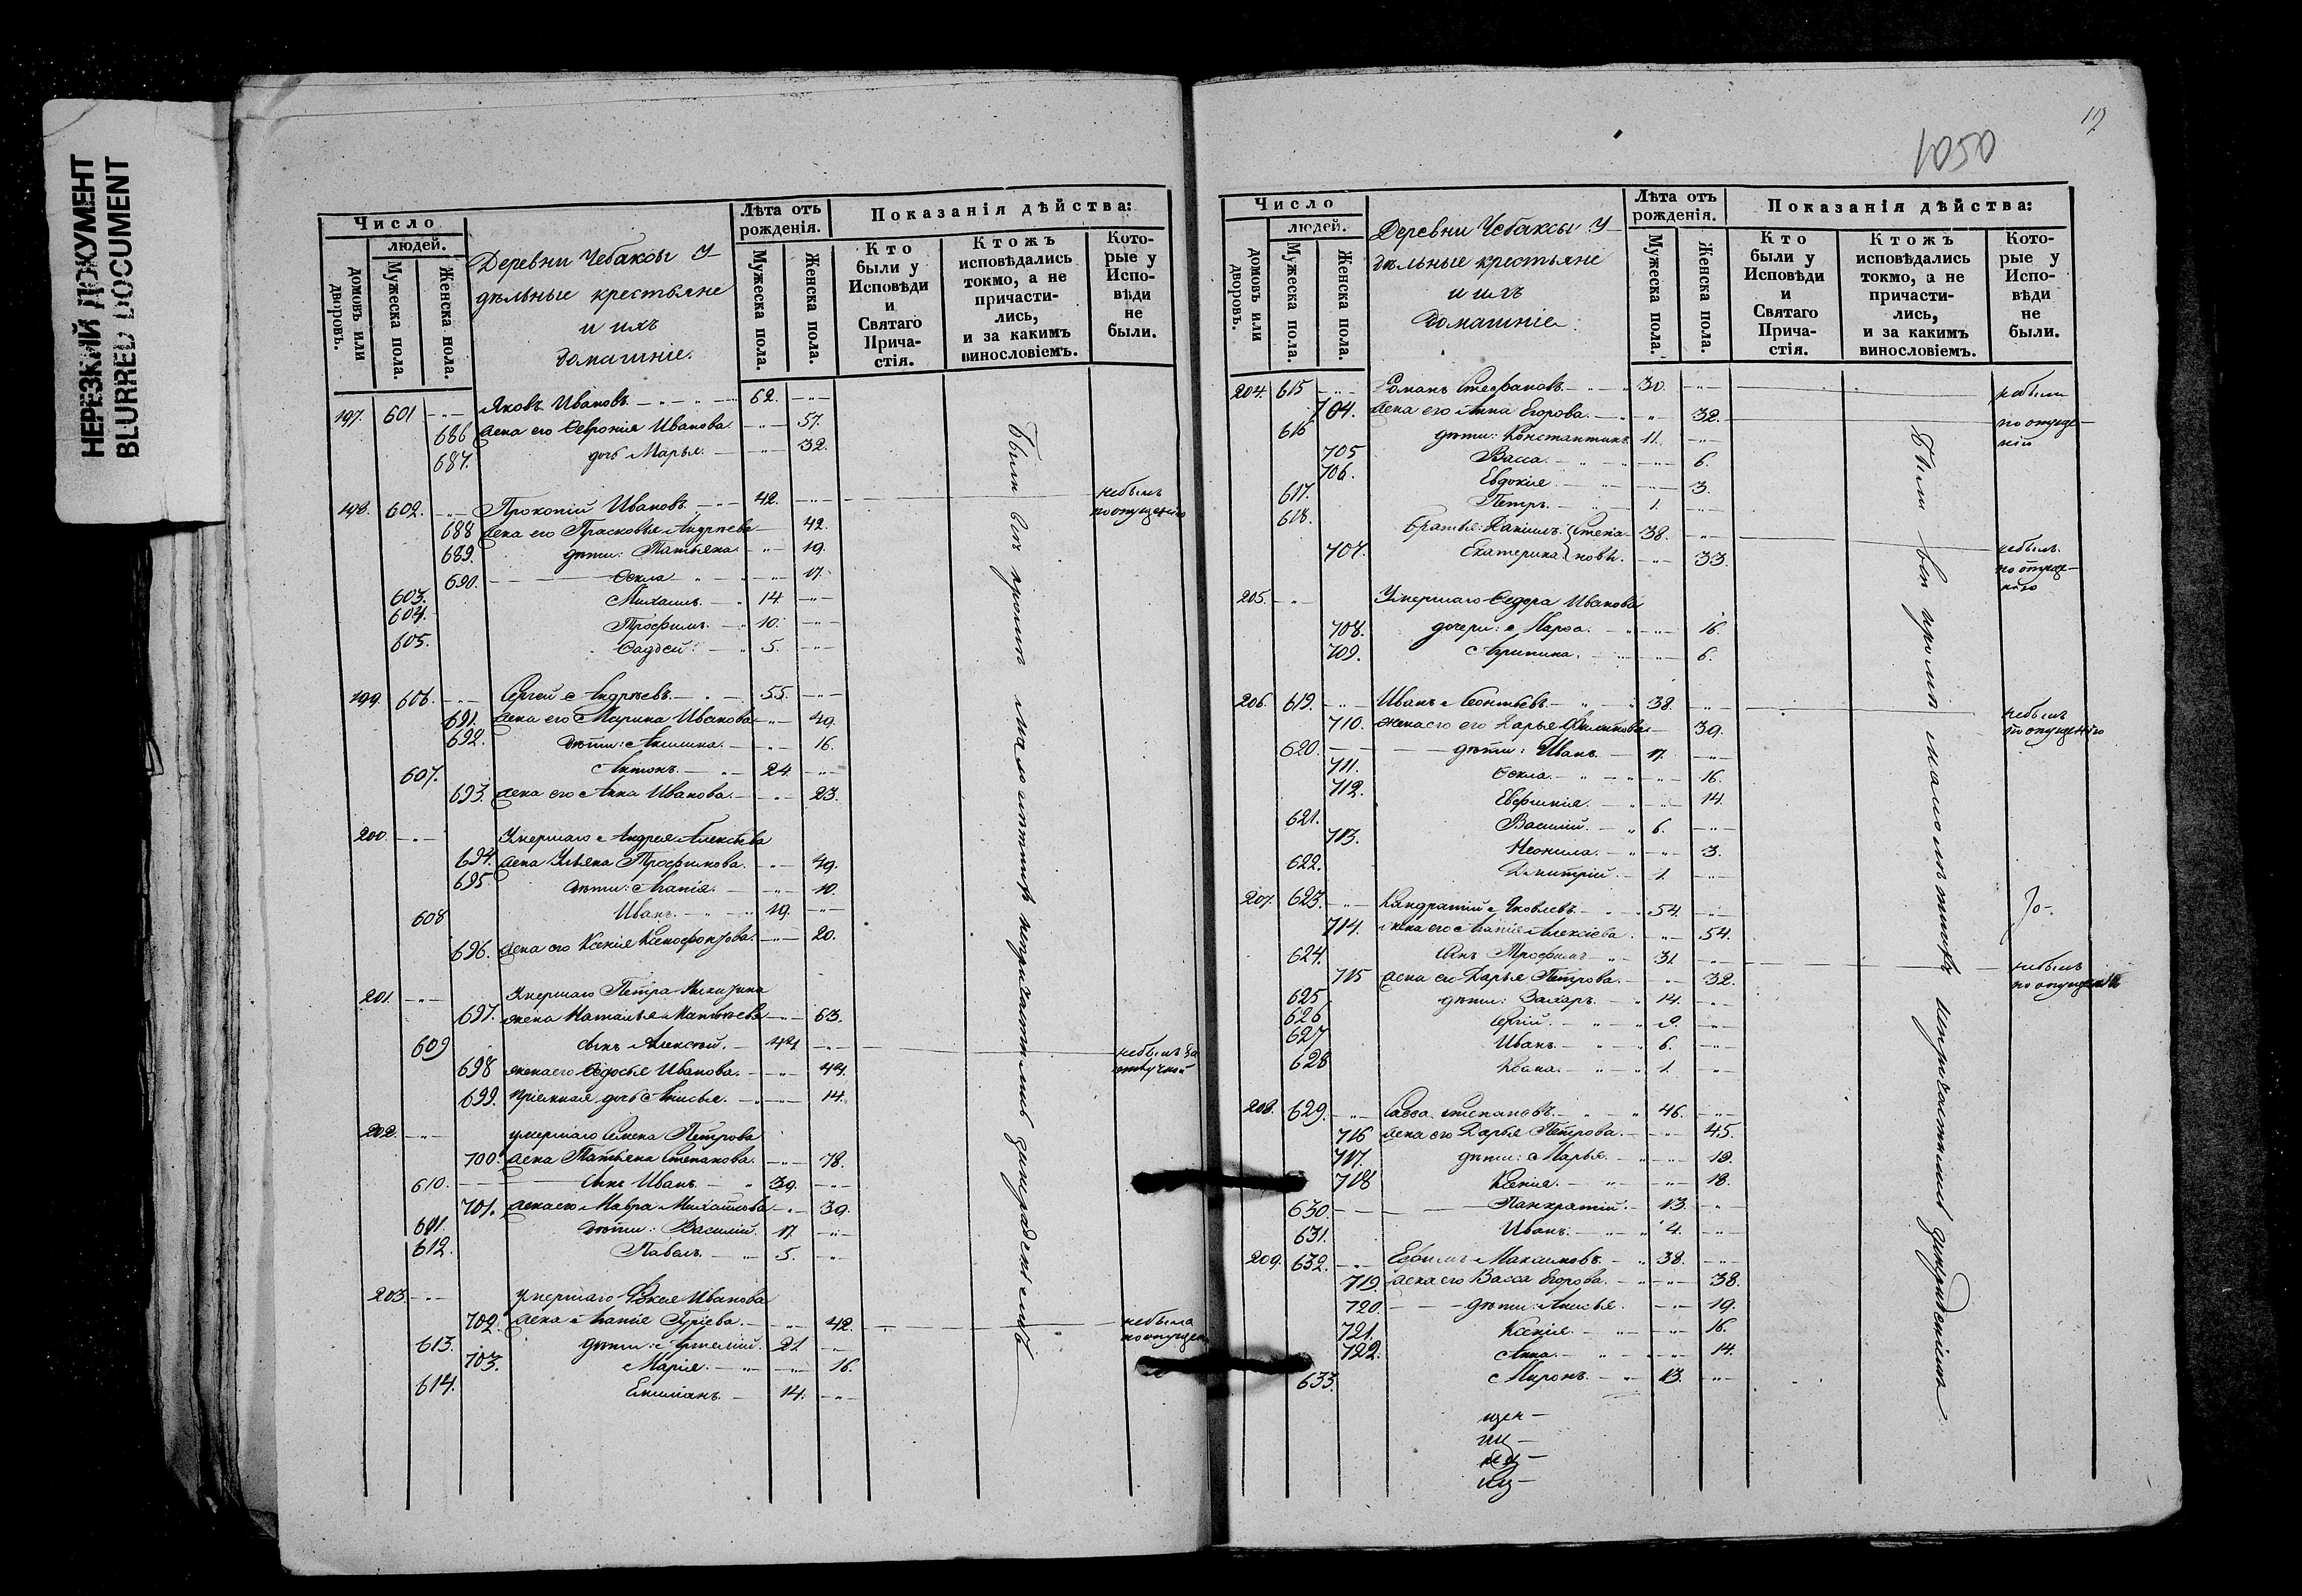 НЕРЕЗКИЙ ДОКУМЕНТ
BLURRED DOCUMENT
Число
людей.
домовъ или дворовъ.
Мужеска пола.
Женска пола.
Деревни Чебаксы У-
дѣльные крестьяне
и ихъ
домашніе.
Лѣта отъ рожденія.
Мужеска пола.
Женска пола.
Показанія дѣйства:
Кто были у Исповѣди и Святаго Прича-стія.
Ктожъ исповѣдались токмо, а не причасти-лись, и за какимъ винословіемъ.
Кото-рые у Испо-вѣди не были.
197. 601 Яковъ Ивановъ 62.
686 жена его Ѳевронія Иванова. 57.
687. дочь Марья. 32.
198. 602. Прокопій Ивановъ. 42. небылъ по опущенію
688 жена его Прасковья Андреева 42.
689. дѣти: Татьяна. 19.
690. Ѳекла 17.
603. Михаилъ. 14.
604. Трофимъ. 10.
605. Фаддей. 5.
199. 606. Сергей Андреевъ. 55.
691. жена его Марина Иванова 49.
692. дѣти: Акилина. 16.
607. Антонъ. 24.
693. жена его Анна Иванова. 23.
200. Умершаго Андрея Алексѣева
694. жена Ульяна Трофимова. 49.
695. дѣти: Агапія. 10.
608 Иванъ. 19.
696. жена его Ксенія Ксенофонтова. 20.
201. Умершаго Петра Никитина
697. жена Наталья Матвѣева 63.
609 сынъ Алексѣй. 44. небылъ за отлучкой
698 жена его Ѳедосья Иванова. 44.
699. пріемная дочь Анисья. 14.
202. умершаго Семена Петрова
700. жена Татьяна Степанова. 78.
610. сынъ Иванъ. 39.
701. жена его Мавра Михайлова 39.
611. дѣти: Василій. 17.
612. Павелъ. 5.
203. умершаго Ивanова
702. жена Агапія Гуріева. 42. небыла по опущен
613. дѣти: Артемій. 21.
703. Марія. 16.
614. Емиліанъ. 14.
Были всѣ кромѣ малолѣтнихъ непричастились
17
1050
Число
людей.
домовъ или дворовъ.
Мужеска пола.
Женска пола.
Деревни Чебаксы У-
дѣльные крестьяне
и ихъ
домашніе.
Лѣта отъ рожденія.
Мужеска пола.
Женска пола.
Показанія дѣйства:
Кто были у Исповѣди и Святаго Прича-стія.
Ктожъ исповѣдались токмо, а не причасти-лись, и за какимъ винословіемъ.
Кото-рые у Испо-вѣди не были.
204. 615 Романъ Стефановъ. 30. небыли
704. жена его Анна Егорова. 32. по опуще-нію
616 дѣти: Константинъ. 11.
705 Васса. 6.
706. Евдокія. 3.
617. Петръ. 1.
618. братья: Данилъ. Степа- 38. небылъ
707. Екатерина новы. 33. по опуще-нію
205. Умершаго Ѳедора Иванова
708. дочери: Марѳа. 16.
709. Агрипина. 6.
206. 619. Иванъ Леонтьевъ. 38. небылъ
710. жена его Дарья Филипова 39. по опущенію
620. дѣти: Иванъ. 17.
711. Ѳекла. 16.
712. Евфимія. 14.
621. Василій. 6.
713. Неонила. 3.
622. Димитрій. 1.
207. 623. Кандратій Яковлевъ. 54.
714. жена его Агапія Алексіева. 54.
624. сынъ Трофимъ 31. небылъ
715 жена его Дарья Петрова. 32. по опущенію
625 дѣти: Захаръ. 14.
626 Сергій. 9.
627 Иванъ. 6.
628 1.
208. 629. Савва Степановъ. 46.
716 жена его Дарья Петрова. 45.
717. дѣти: Марья. 19.
718 Ксенія. 18.
630. Панкратій. 13.
631. Иванъ. 4.
209. 632. Ефимъ Максимовъ. 38.
719. жена его Васса Егорова. 38.
720. дѣти: Анисья. 19.
721. Ксенія. 16.
722. Анна. 14.
633. Миронъ. 13.
Были всѣ кромѣ малолѣтнихъ непричастились